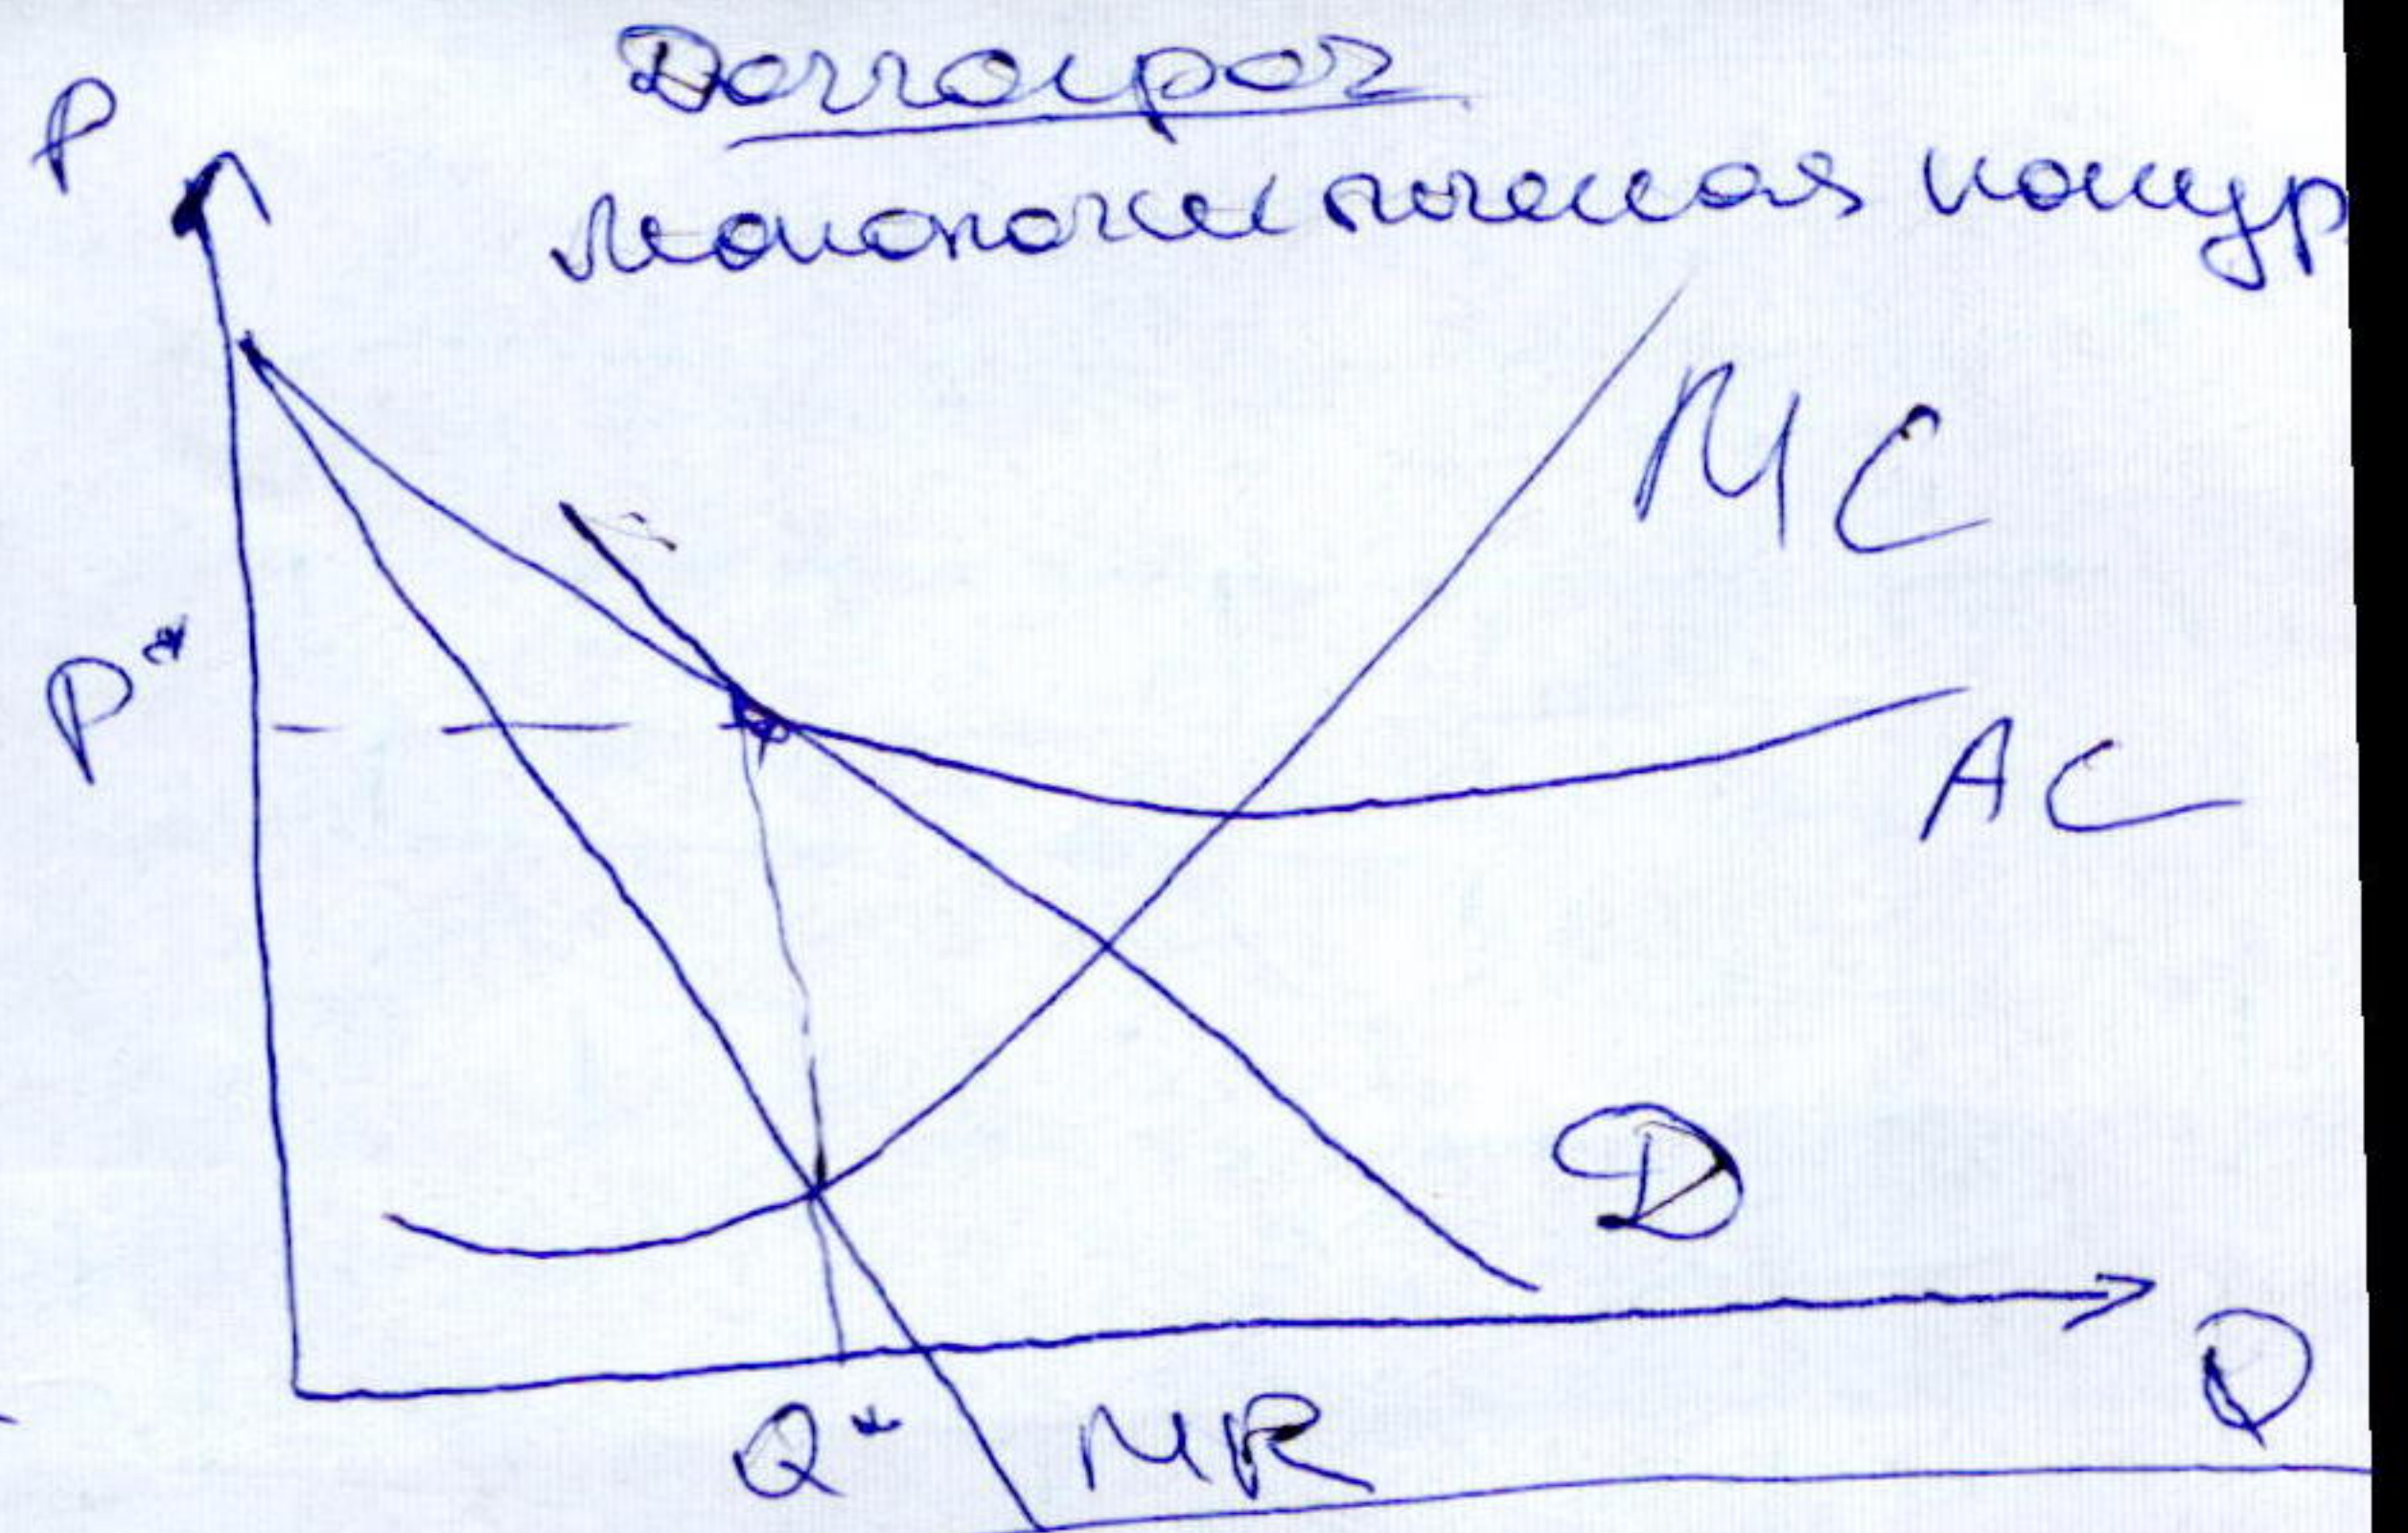 Долгосроч
монополистическая конкур
P
MC
P*
AC
D
Q
Q* MR